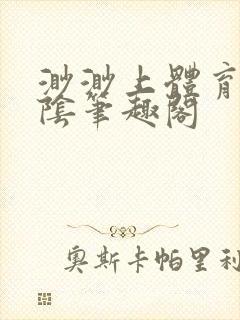 渺渺上體育
陰筆趣閣
奧斯卡帕里利